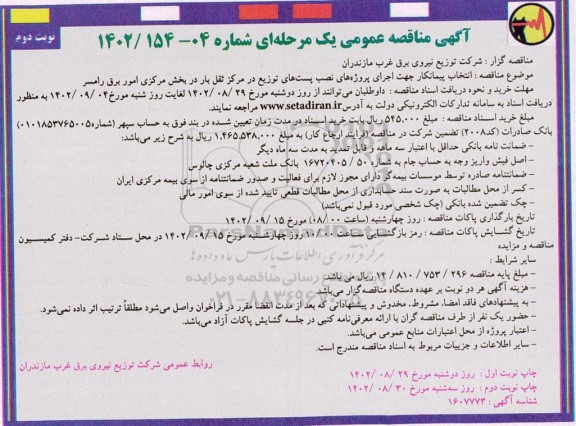 نوبت دوم
آگهی مناقصه عمومی یک مرحله‌ای شماره ۰۴- ۱۵۴ /۱۴۰۲
مناقصه گزار : شرکت توزیع نیروی برق غرب مازندران
موضوع مناقصه : انتخاب پیمانکار جهت اجرای پروژه‌های نصب پست‌های توزیع در مرکز ثقل بار در بخش مرکزی امور برق رامسر
مهلت خرید و نحوه دریافت اسناد مناقصه : داوطلبان می‌توانند از روز دوشنبه مورخ ۲۹ /۰۸ /۱۴۰۲ لغایت روز شنبه مورخ ۰۴ /۰۹ /۱۴۰۲ به منظور
دریافت اسناد به سامانه تدارکات الکترونیکی دولت به آدرس www.setadiran.ir مراجعه نمایند.
مبلغ خرید اسناد مناقصه : مبلغ ۵۴۵،۰۰۰ ریال بابت خرید اسناد در مدت زمان تعیین شده در بند فوق به حساب سپهر (شماره ۰۱۰۱۸۵۳۷۶۵۰۰۵)
بانک صادرات (کد۲۰۰۸) تضمین شرکت در مناقصه (فرایند ارجاع کار) به مبلغ ۱،۴۶۵،۵۳۸،۰۰۰ ریال به شرح زیر می‌باشد:
– ضمانت نامه بانکی حداقل با اعتبار سه ماهه و قابل تمدید به مدت سه ماه دیگر
– اصل فیش واریز وجه به حساب جام به شماره ۵۰ / ۱۶۷۲۰۴۰۵ بانک ملت شعبه مرکزی چالوس
– ضمانتنامه صادره توسط موسسات بیمه گر دارای مجوز لازم برای فعالیت و صدور ضمانتنامه از سوی بیمه مرکزی ایران
– کسر از محل مطالبات به صورت سند حسابداری از محل مطالبات قطعی تایید شده از سوی امور مالی
– چک تضمین شده بانکی (چک شخصی مورد قبول نمی‌باشد)
تاریخ بارگذاری پاکات مناقصه : روز چهارشنبه (ساعت ۰۸/۰۰) مورخ ۱۵ /۰۹ /۱۴۰۲
تاریخ گشایش پاکات مناقصه : رمز بازگشایی ساعت ۱۰/۰۰ روز چهارشنبه مورخ ۱۵ /۰۹ /۱۴۰۲ در محل ستاد شرکت- دفتر کمیسیون
مناقصه و مزایده
سایر شرایط :
– مبلغ پایه مناقصه ۲۹۶ / ۷۵۳ / ۸۱۰ / ۱۴ ریال می باشد.
– هزینه آگهی هر دو نوبت بر عهده دستگاه مناقصه‌گزار می‌باشد.
– به پیشنهادهای فاقد امضا، مشروط، مخدوش و پیشنهاداتی که بعد از مدت انقضا مقرر در فراخوان واصل می‌شود مطلقاً ترتیب اثر داده نمی‌شود.
– حضور یک نفر از طرف مناقصه گران با ارائه معرفی‌نامه کتبی در جلسه گشایش پاکات آزاد می‌باشد.
– اعتبار پروژه از محل اعتبارات منابع عمومی می‌باشد.
– سایر اطلاعات و جزییات مربوط به اسناد مناقصه مندرج است.
چاپ نوبت اول : روز دوشنبه مورخ ۲۹ /۰۸ /۱۴۰۲
روابط عمومی شرکت توزیع نیروی برق غرب مازندران
چاپ نوبت دوم : روز سه‌شنبه مورخ ۳۰ /۰۸ /۱۴۰۲
شناسه آگهی : ۱۶۰۷۷۷۳
ParsNamadData
۰۲۱-۸۸۳۴۹۶۷۰